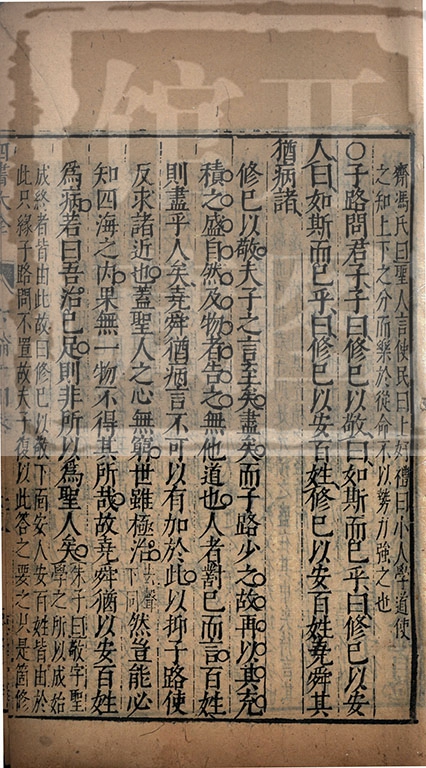 齊馮氏曰聖人言使民曰上好禮曰小人學道使
之知上下之分而樂於從命不以勢力強之也
○子路問君子子曰修己以敬曰如斯而已乎曰修己以安
人曰如斯而已乎曰修己以安百姓修己以安百姓堯舜其
猶病諸
修己以敬夫子之言至矣盡矣而子路少之故再以其充
積之盛自然及物者告之無他道也人者對己而言百姓
則盡乎人矣堯舜猶病言不可以有加於此以抑子路使
反求諸近也蓋聖人之心無窮世雖極治去聲下同然豈能必
知四海之內果無一物不得其所哉故堯舜猶以安百姓
為病若曰吾治已足則非所以為聖人矣朱子曰敬字聖學之所以成始
成終者皆由此故曰修己以敬下面安人安百姓皆由於
此只緣子路問不置故夫子復以此答之要之只是箇修
四書大全